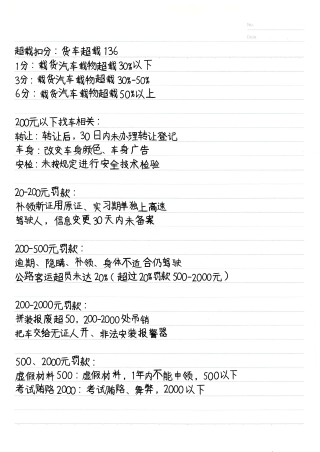 超载扣分：货车超载136
1分：载货汽车载物超载30%以下
3分：载货汽车载物超载30%-50%
6分：载货汽车载物超载50%以上
200元以下找车相关：
转让：转让后，30日内未办理转让登记
车身：改变车身颜色、车身广告
安检：未按规定进行安全技术检验
20-200元罚款：
补领新证用原证、实习期单独上高速
驾驶人，信息变更30天内未备案
200-500元罚款：
逾期、隐瞒、补领、身体不适合仍驾驶
公路客运超员未达20%（超过20%罚款500-2000元）
200-2000元罚款：
拼装报废超50，200-2000处吊销
把车交给无证人开、非法安装报警器
500、2000元罚款：
虚假材料500：虚假材料，1年内不能申领，500以下
考试贿赂2000：考试贿赂、舞弊，2000以下